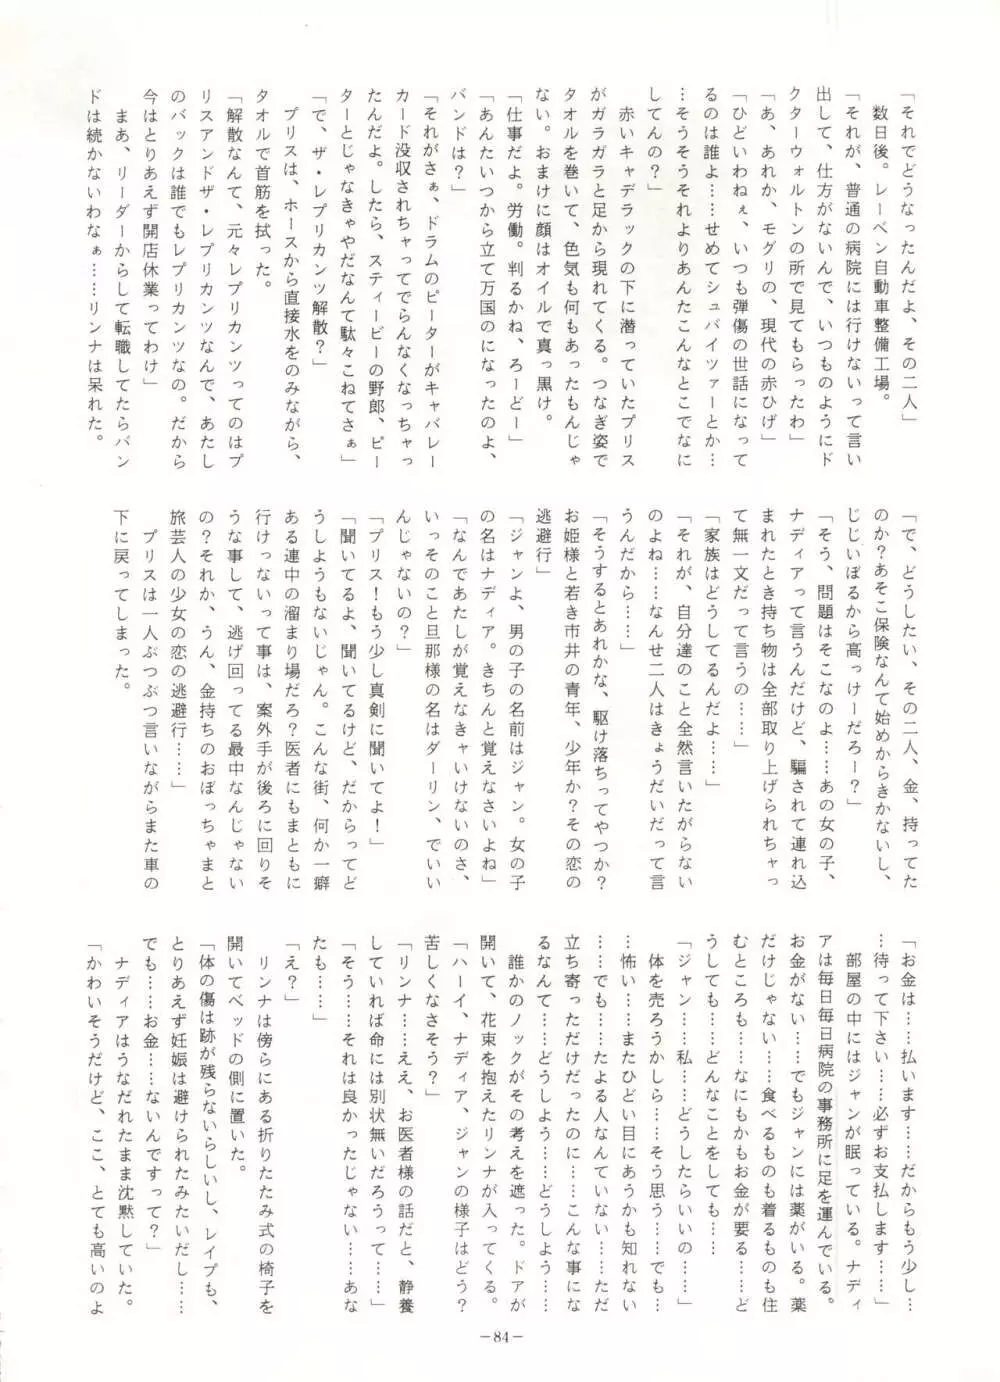 「それでどうなったんだよ、その二人」
　数日後。レーベン自動車整備工場。
「それが、普通の病院には行けないって言い
出して、仕方がないんで、いつものようにド
クターウォルトンの所で見てもらったわ」
「あ、あれか、モグリの、現代の赤ひげ」
「ひどいわねぇ、いつも弾傷の世話になって
るのは誰よ……せめてシュバイツァーとか…
…そうそうそれよりあんたこんなとこでなに
してんの？」
　赤いキャデラックの下に潜っていたプリス
がガラガラと足から現れてくる。つなぎ姿で
タオルを巻いて、色気も何もあったもんじゃ
ない。おまけに顔はオイルで真っ黒け。
「仕事だよ。労働。判るかね、ろーどー」
「あんたいつから立て万国のになったのよ、
バンドは？」
「それがさぁ、ドラムのピーターがキャバレー
カード没収されちゃってでらんなくなっちゃっ
たんだよ。したら、スティービーの野郎、ピー
ターとじゃなきゃやだなんて駄々こねてさぁ」
「で、ザ・レプリカンツ解散？」
　プリスは、ホースから直接水をのみながら、
タオルで首筋を拭った。
「解散なんて、元々レプリカンツってのはプ
リスアンドザ・レプリカンツなんで、あたし
のバックは誰でもレプリカンツなの。だから
今はとりあえず開店休業ってわけ」
　まあ、リーダーからして転職してたらバン
ドは続かないわなぁ……リンナは呆れた。
「で、どうしたい、その二人、金、持ってた
のか？あそこ保険なんて始めからきかないし、
じじいぼるから高っけーだろー？」
「そう、問題はそこなのよ……あの女の子、
ナディアって言うんだけど、騙されて連れ込
まれたとき持ち物は全部取り上げられちゃっ
て無一文だって言うの……」
「家族はどうしてるんだよ……」
「それが、自分達のこと全然言いたがらない
のよね……なんせ二人はきょうだいだって言
うんだから……」
「そうするとあれかな、駆け落ちってやつか？
お姫様と若き市井の青年、少年か？その恋の
逃避行」
「ジャンよ、男の子の名前はジャン。女の子
の名はナディア。きちんと覚えなさいよね」
「なんであたしが覚えなきャいけないのさ、
いっそのこと旦那様の名はダーリン、でいい
んじゃないの？」
「プリス！もう少し真剣に聞いてよ！」
「聞いてるよ、聞いてるけど、だからってど
うしようもないじゃん。こんな街、何か一癖
ある連中の溜まり場だろ？医者にもまともに
行けっないって事は、案外手が後ろに回りそ
うな事して、逃げ回ってる最中なんじゃない
の？それか、うん、金持ちのおぼっちゃまと
旅芸人の少女の恋の逃避行……」
　プリスは一人ぶつぶつ言いながらまた車の
下に戻ってしまった。
「お金は……払います……だからもう少し…
…待って下さい……必ずお支払します……」
　部屋の中にはジャンが眠っている。ナディ
アは毎日毎日病院の事務所に足を運んでいる。
お金がない……でもジャンには薬がいる。薬
だけじゃない……食べるものも着るものも住
むところも……なにもかもお金が要る……ど
うしても……どんなことをしても……
「ジャン……私……どうしたらいいの……」
　体を売ろうかしら……そう思う……でも…
…怖い……またひどい目にあうかも知れない
……でも……たよる人なんていない……ただ
立ち寄っただけだったのに……こんな事にな
るなんて……どうしよう……どうしよう……
　誰かのノックがその考えを遮った。ドアが
開いて、花束を抱えたリンナが入ってくる。
「ハーイ、ナディア、ジャンの様子はどう？
苦しくなさそう？」
「リンナ……ええ、お医者様の話だと、静養
していれば命には別状無いだろうって……」
「そう……それは良かったじゃない……あな
たも……」
「え？」
　リンナは傍らにある折りたたみ式の椅子を
開いてベッドの側に置いた。
「体の傷は跡が残らないらしいし、レイプも、
とりあえず妊娠は避けられたみたいだし……
でも……お金……ないんですって？」
　ナディアはうなだれたまま沈黙していた。
「かわいそうだけど、ここ、とても高いのよ
－84－